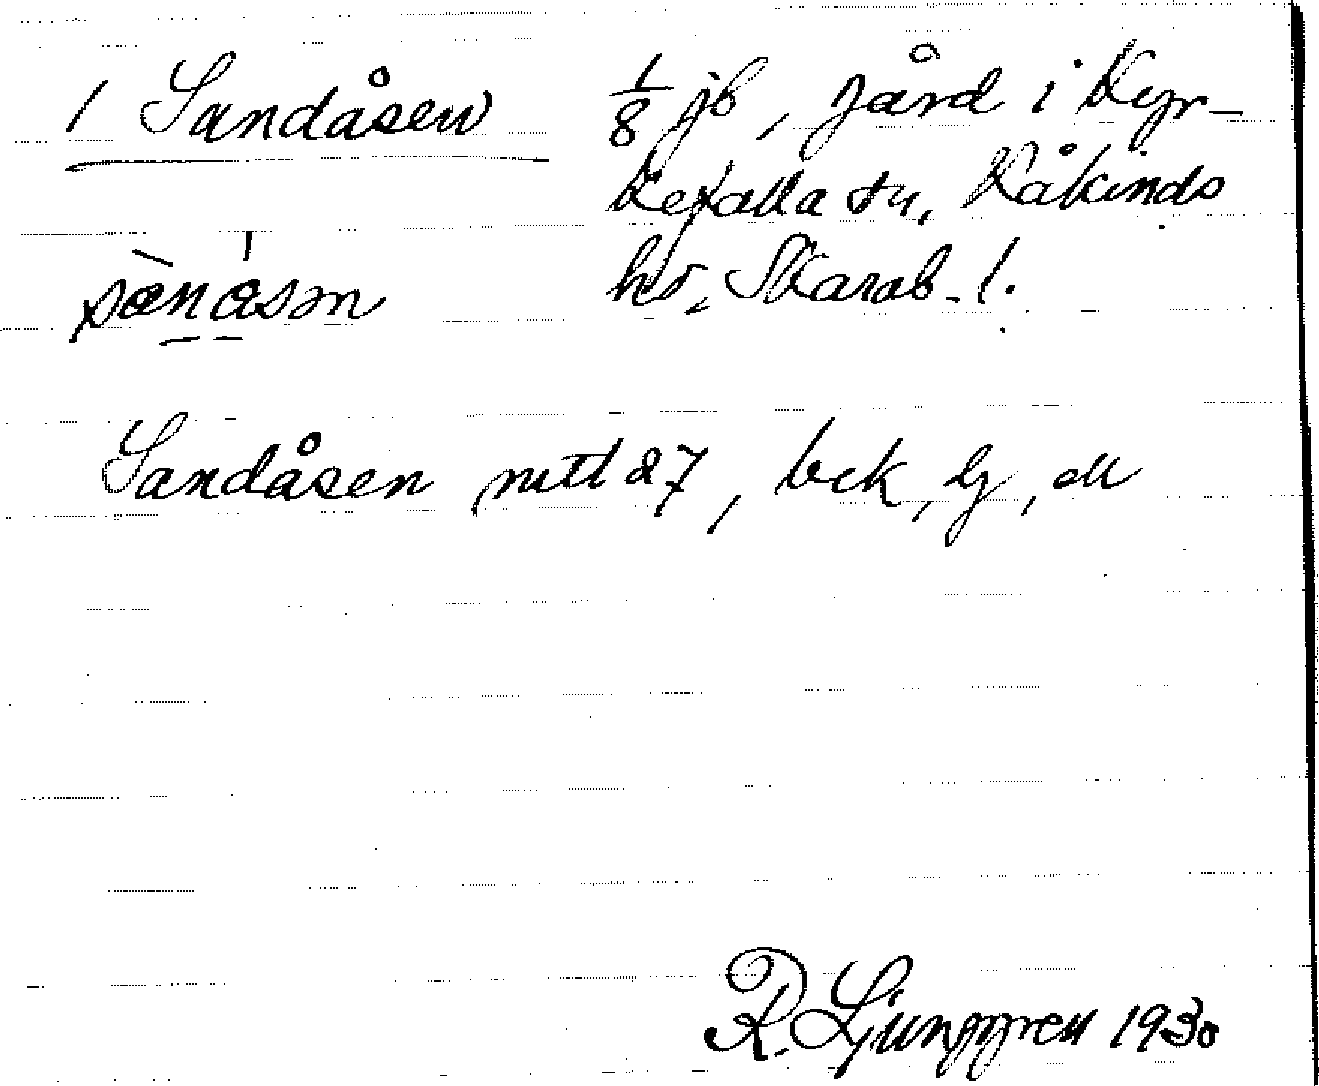 1 Sandåsen
1/8 jb, gård i Kyr-
kefalla sn, Kåkinds
hd. Skarab. l.
sànåsən
Sandåsen mtl 87, bek, lj, all
R. Ljunggren 1930